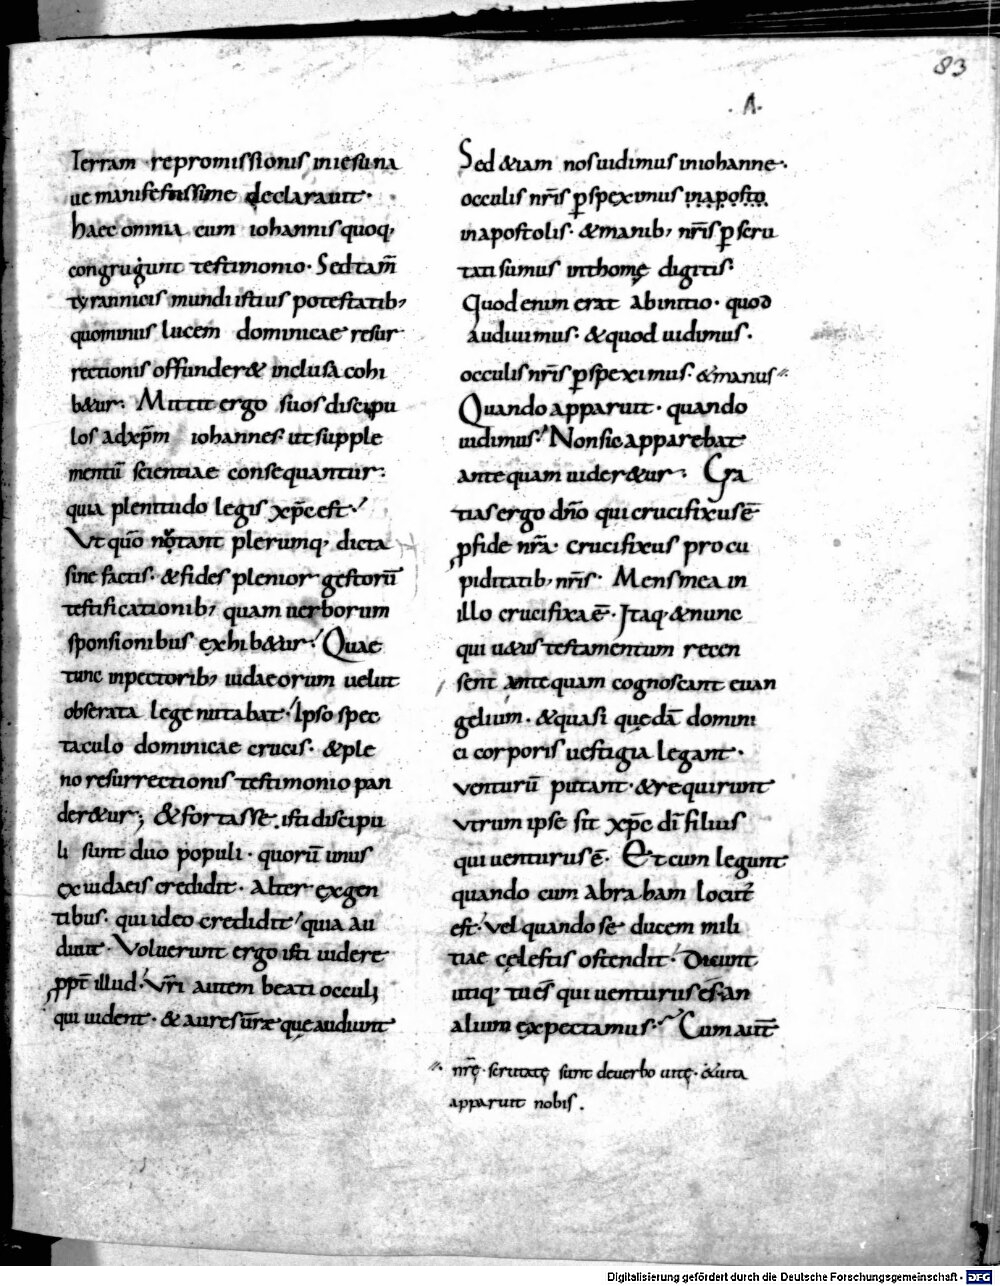 83
.A.
Terram repromissionis in iesu na
ue manifestissime declarauit·
haec omnia cum iohannis quoq;
congrugunt testimonio· Sed tam̄
tyrannicis mundi istius potestatib;
quominus lucem dominicae resur
rectionis offunder& inclusa cohi
b&ur· Mittit ergo suos discipu
los ad xp̄m iohannes ut supple
mentū scientiae consequantur·
quia plenitudo legis xp̄c est·
Vt qūo notant plerumq; dicta
sine factis· & fides plenior gestorū
testificationib; quam uerborum
sponsionibus exhib&ur· Quae
tunc in pectorib; iudaeorum uelut
obserata lege nutabat· Ipso spec
taculo dominicae crucis· & ple
no resurrectionis testimonio pan
der&ur; & fortasse isti discipu
li sunt duo populi· quorū unus
ex iudaeis credidit· Alter ęx gen
tibus· qui ideo credidit quia au
diuit· Voluerunt ergo isti uidere
ppt̄ illud· Vr̄i autem beati occuli
qui uident· & aures ur̄ae que audiunt
Sed &iam nos uidimus in iohanne·
occulis nr̄is pspeximus in aposto
in apostolis· & manib; nr̄is pscru
tati sumus in thomę digitis·
Quod enim erat ab initio· quod
audiuimus· & quod uidimus·
occulis nr̄is pspeximus· & manus
Quando apparuit· quando
uidimus· Non sic apparebat
ante quam uider&ur· Gra
tias ergo dn̄o qui crucifixus ē
p fide nr̄a· crucifixus pro cu
piditatib; nr̄is· Mens mea in
illo crucifixa ē· Itaq; & nunc
qui u&us testamentum recen
sent ante quam cognoscant euan
gelium· & quasi quedā domini
ci corporis uestigia legant·
venturū putant· & requirunt
vtrum ipse sit xp̄c dī filius
qui uenturus ē· Et cum legunt
quando cum abraham locut
est· vel quando se ducem mili
tiae celestis ostendit· Dicunt
utiq; tu es qui uenturus es· an
alium expectamus· Cum aut̄
nr̄ę· scrutatę sunt de uerbo uitę· & uita
apparuit nobis.
Digitalisierung gefördert durch die Deutsche Forschungsgemeinschaft - DFG